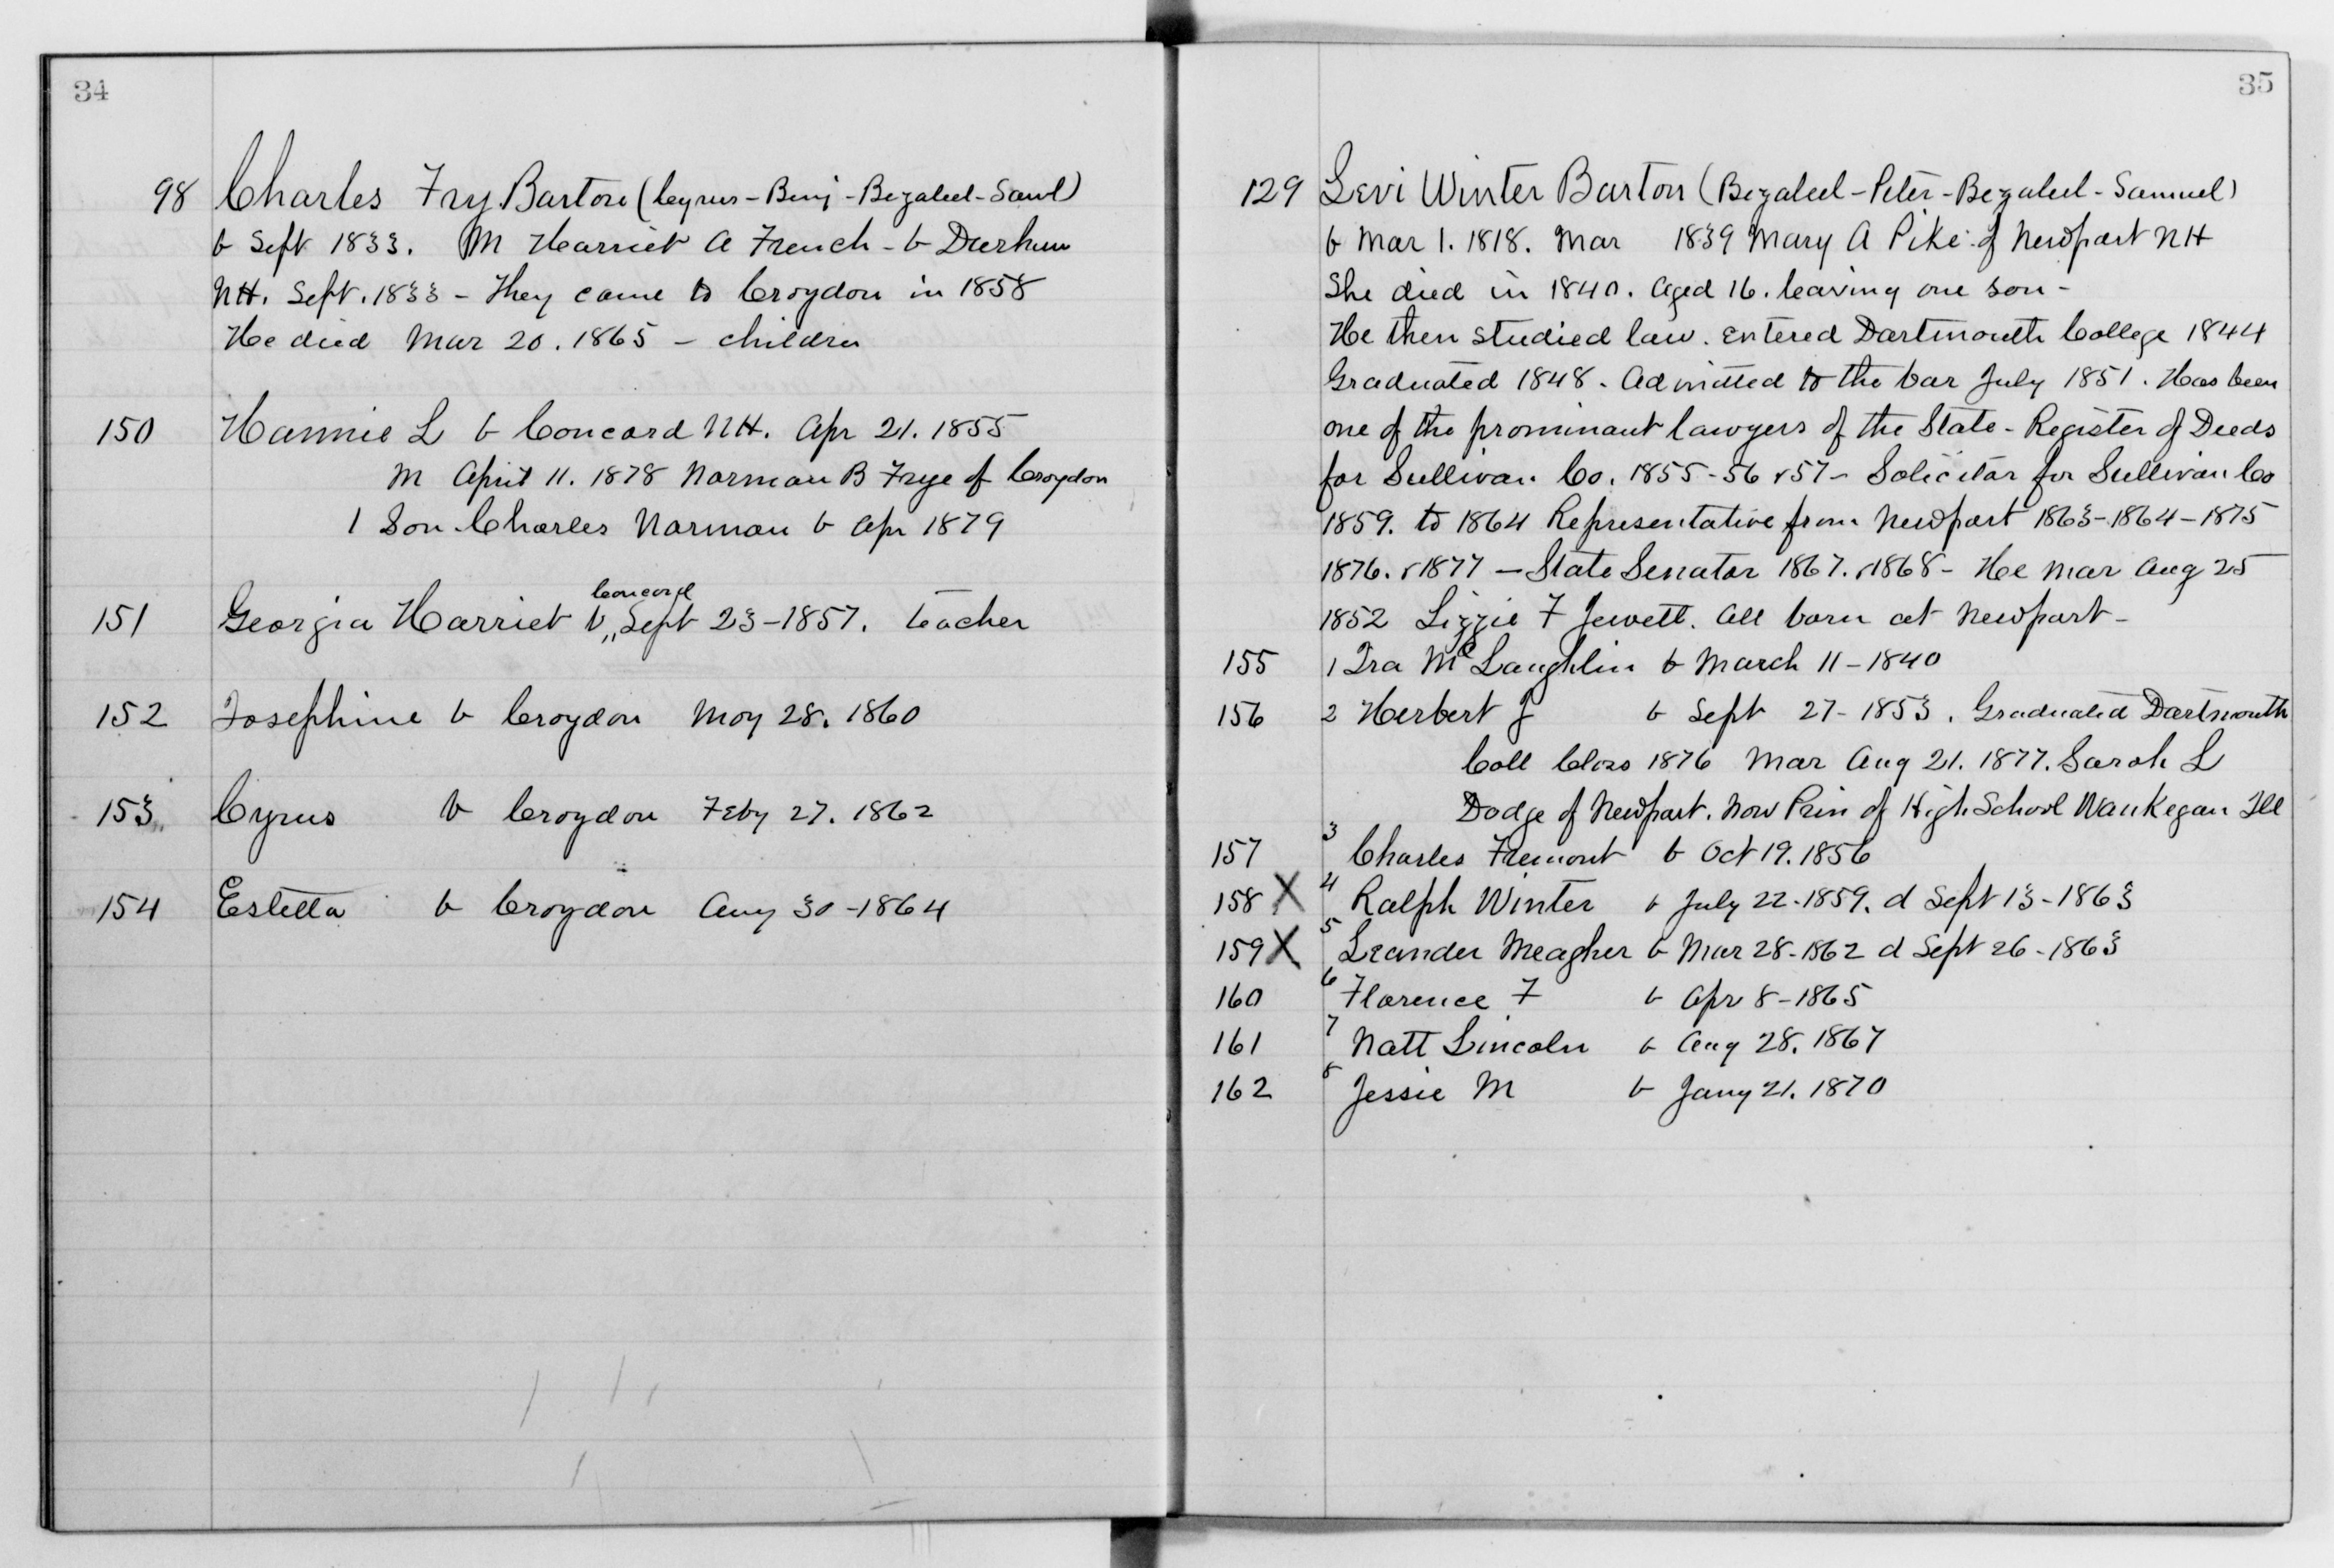 34
98 Charles Fry Barton (Cyrus - Benj - Bezaleel - Saml)
b Sept 1833. M Harriet A French - b Durham
NH. Sept. 1833 - They came to Croydon in 1858
He died Mar 20. 1865 - children
150 Hannie L b Concord NH. Apr 21. 1855
M April 11. 1878 Norman B Frye of Croydon
1 Son Charles Norman b Apr 1879
Concord
151 Georgia Harriet b,, Sept 23-1857. teacher
152 Josephine b Croydon May 28. 1860
153 Cyrus b Croydon Feby 27. 1862
154 Estella b Croydon Aug 30-1864
35
129 Levi Winter Barton (Bezaleel - Peter - Bezaleel - Samuel)
b Mar 1. 1818. Mar 1839 Mary A Pike of Newport NH
She died in 1840. Aged 16. leaving one son -
He then studied law. Entered Dartmouth College 1844
Graduated 1848. Admitted to the bar July 1851. Has been
one of the prominant lawyers of the State - Register of Deeds
for Sullivan Co. 1855-56 & 57 - Solicitor for Sullivan Co
1859. to 1864 Representative from Newport 1863-1864-1875
1876. & 1877 - State Senator 1867. & 1868 - He mar Aug 25
1852 Lizzie F Jewett. All born at Newport -
155 1 Ira McLaughlin b March 11-1840
156 2 Herbert J b Sept 27-1853. Graduated Dartmouth
Coll Class 1876 Mar Aug 21. 1877. Sarah L
Dodge of Newport. Now Prin of High School Waukegan Ill
157 3 Charles Fremont b Oct 19. 1856
158 X 4 Ralph Winter b July 22-1859. d Sept 13-1863
159 X 5 Leander Meagher b Mar 28-1862 d Sept 26-1863
160 6 Florence F b Apr 8-1865
161 7 Natt Lincoln b Aug 28. 1867
162 8 Jessie M b Jany 21. 1870